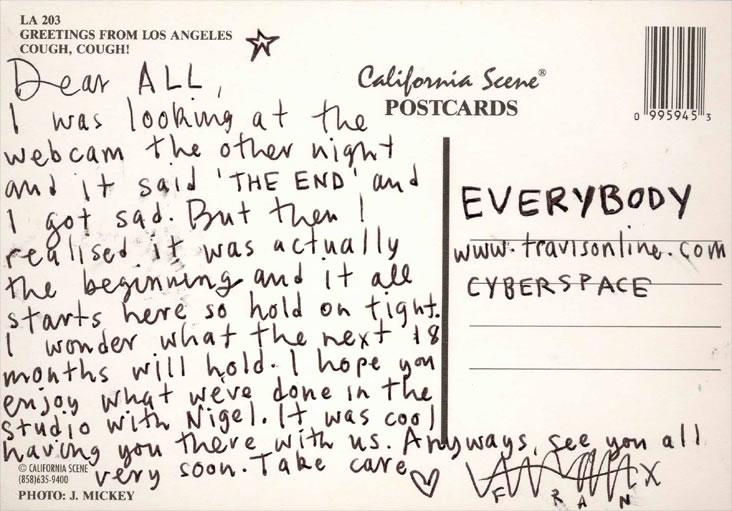 LA 203
GREETINGS FROM LOS ANGELES
COUGH, COUGH!
California Scene®
POSTCARDS
0 995945 3
Dear ALL,
I was looking at the
webcam the other night
and it said 'THE END' and
I got sad. But then I
realised it was actually
the beginning and it all
starts here so hold on tight.
I wonder what the next 18
months will hold. I hope you
enjoy what we've done in the
studio with Nigel. It was cool
having you there with us. Anyways, see you all
very soon. Take care
X
FRAN
EVERYBODY
www.travisonline.com
CYBERSPACE
© CALIFORNIA SCENE
(858)635-9400
PHOTO: J. MICKEY